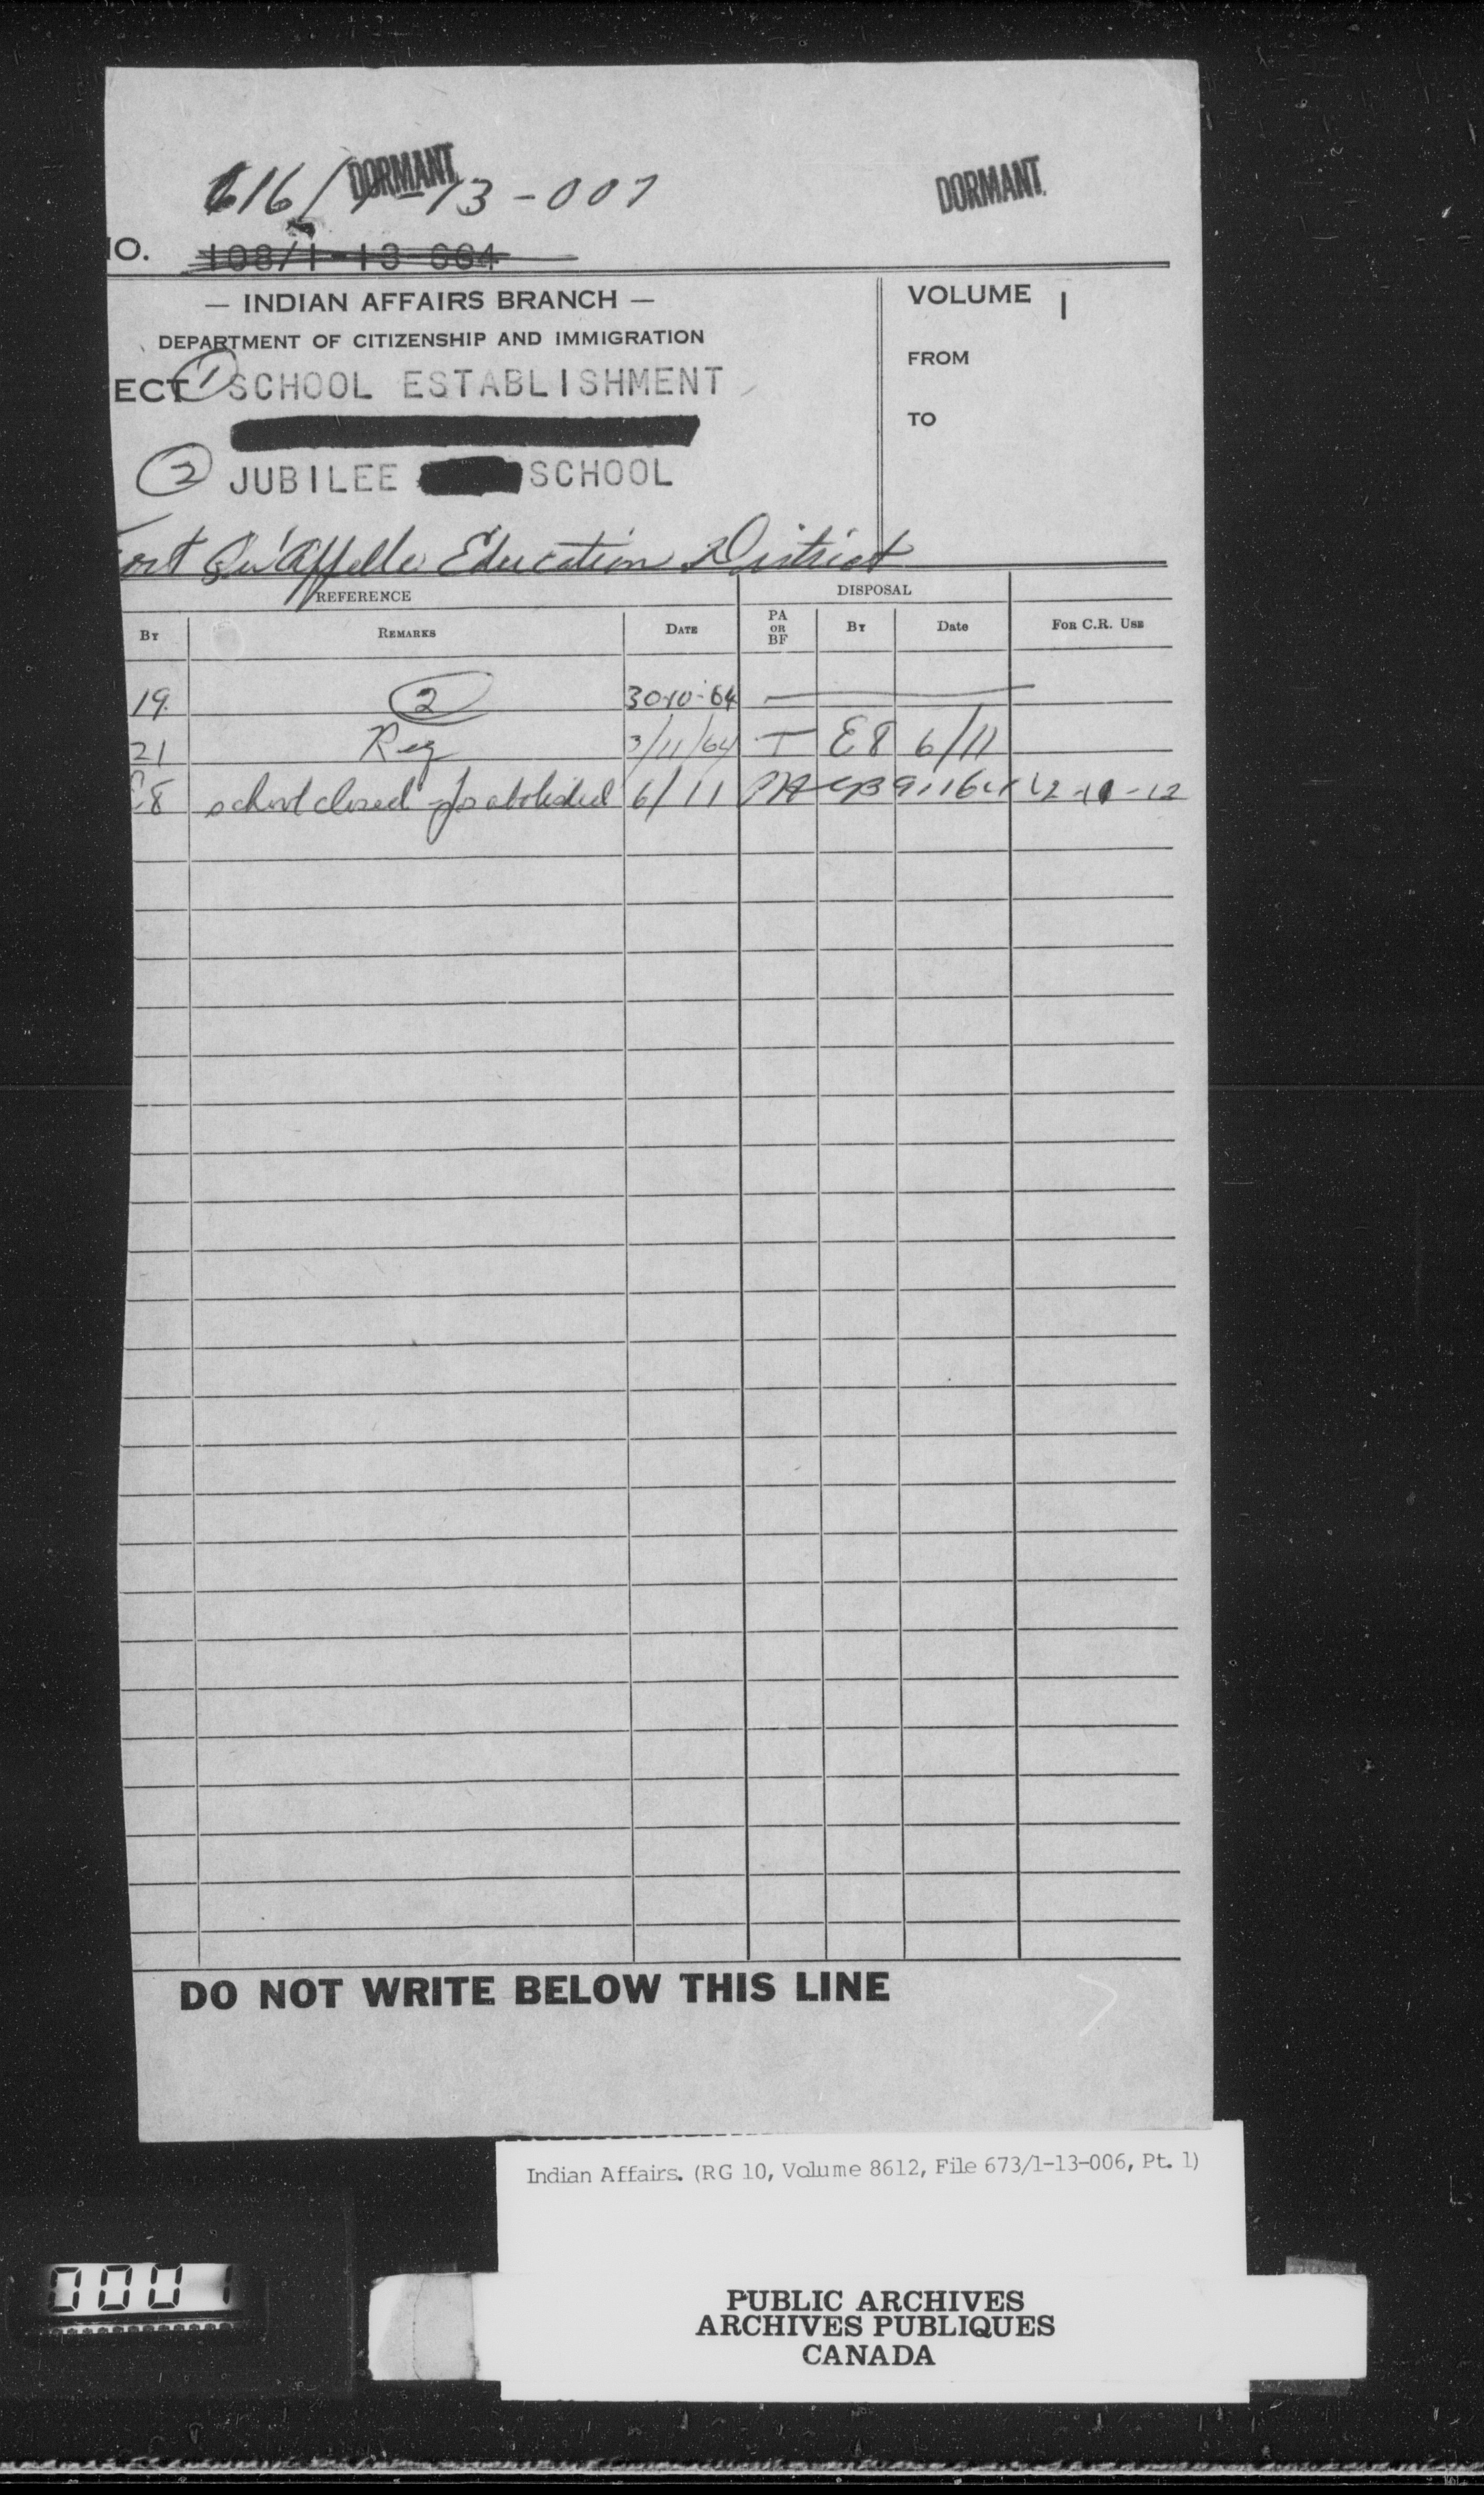 DORMANT
DORMANT
616/1-13-007
NO. 108/1-13-664
— INDIAN AFFAIRS BRANCH —
VOLUME 1
DEPARTMENT OF CITIZENSHIP AND IMMIGRATION
FROM
ECT 1 SCHOOL ESTABLISHMENT
TO
2 JUBILEE SCHOOL
Fort Qu'Appelle Education District
REFERENCE DISPOSAL
BY REMARKS DATE PA OR BF BY Date FOR C.R. USE
19. 2 30-10-64 —
21 Reg 3/11/64 T E8 6/11
E8 school closed abolished 6/11 PA
DO NOT WRITE BELOW THIS LINE
Indian Affairs. (RG 10, Volume 8612, File 673/1-13-006, Pt. 1)
0001
PUBLIC ARCHIVES
ARCHIVES PUBLIQUES
CANADA